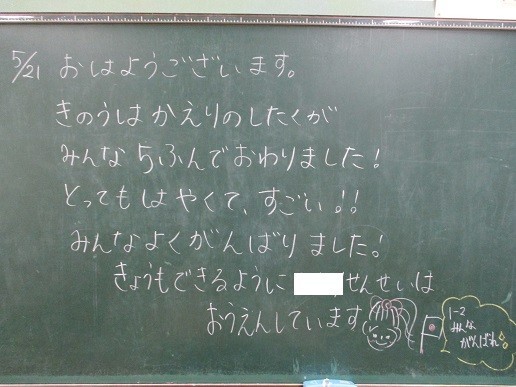 5/21 おはようございます。
きのうは かえりのしたくが
みんな 5ふんで おわりました!
とっても はやくて、すごい!!
みんなよくがんばりました!
きょうもできるように せんせいは
おうえんしています
1-2
みんな
がんばれ!